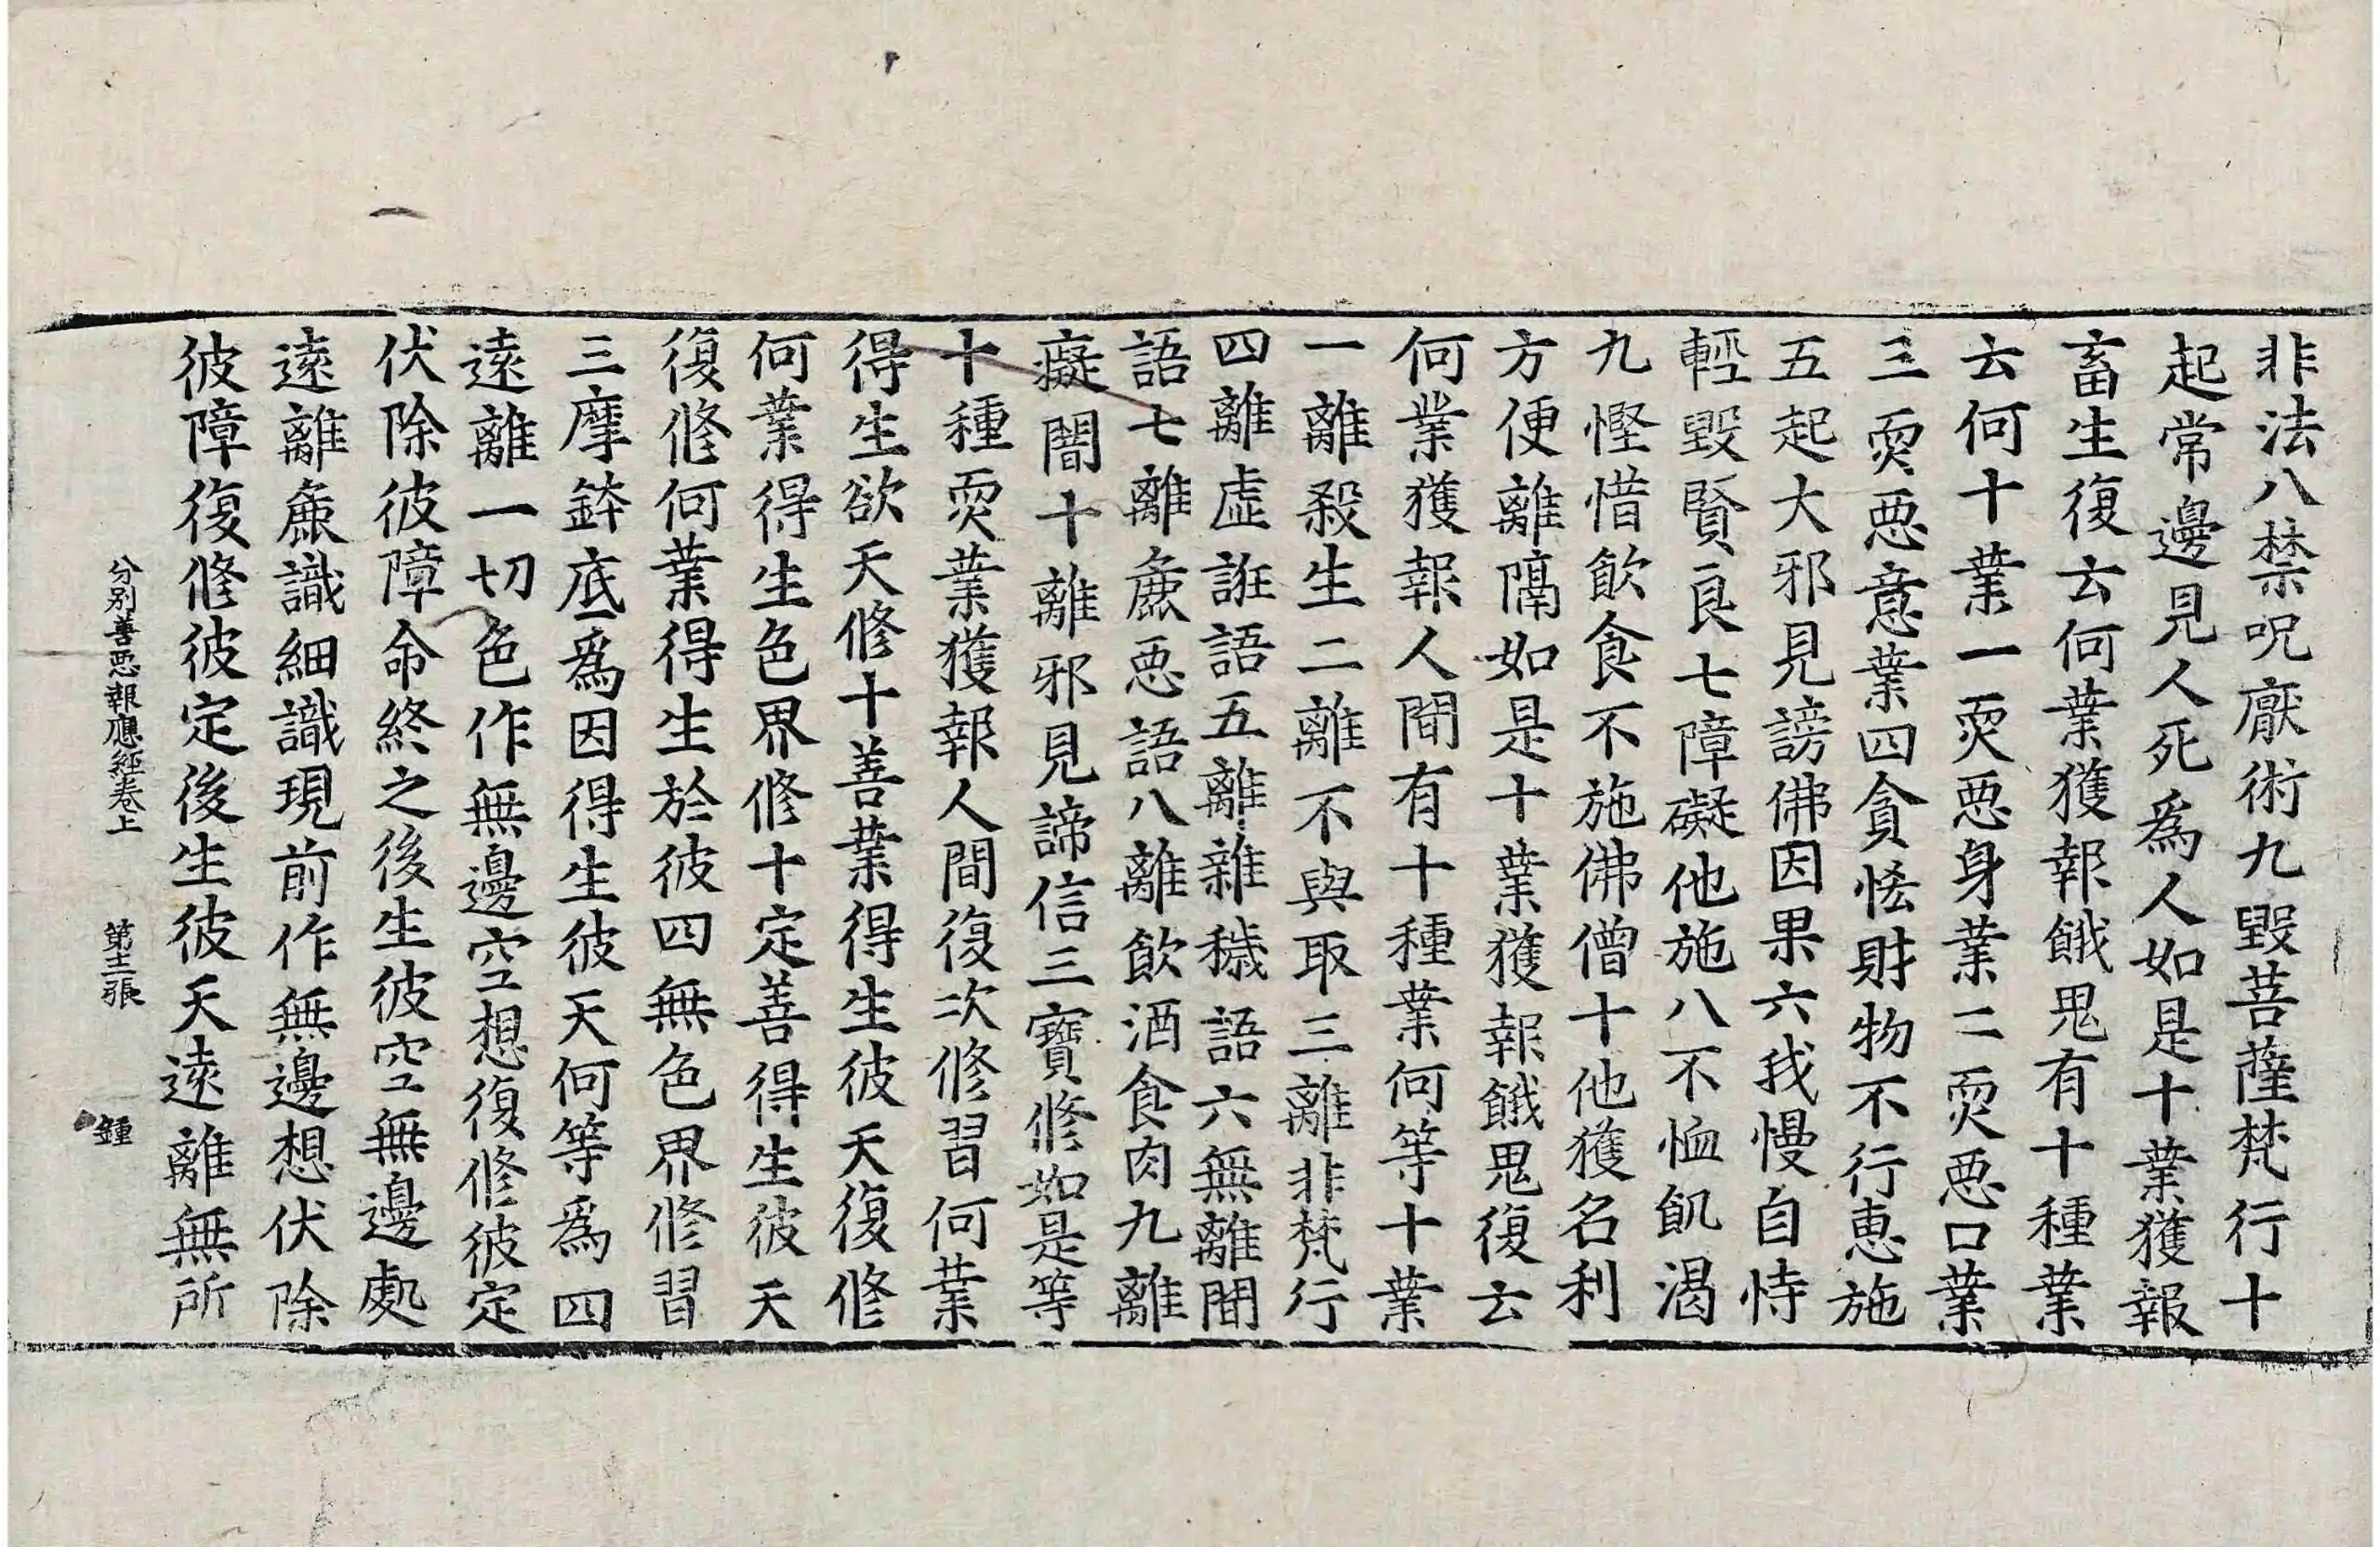 非法八禁呪厭術九毀菩薩梵行十
起常邊見人死為人如是十業獲報
畜生復云何業獲報餓鬼有十種業
云何十業一耎惡身業二耎惡口業
三耎惡意業四貪悋財物不行惠施
五起大邪見謗佛因果六我慢自恃
輕毀賢良七障礙他施八不恤飢渴
九慳惜飲食不施佛僧十他獲名利
方便離隔如是十業獲報餓鬼復云
何業獲報人間有十種業何等十業
一離殺生二離不與取三離非梵行
四離虛誑語五離雜穢語六無離間
語七離麁惡語八離飲酒食肉九離
癡闇十離邪見諦信三寶修如是等
十種耎業獲報人間復次修習何業
得生欲天修十善業得生彼天復修
何業得生色界修十定善得生彼天
復修何業得生於彼四無色界修習
三摩鉢底為因得生彼天何等為四
遠離一切色作無邊空想復修彼定
伏除彼障命終之後生彼空無邊處
遠離麁識細識現前作無邊想伏除
彼障復修彼定後生彼天遠離無所
分別善惡報應經卷上 第十二張 鍾